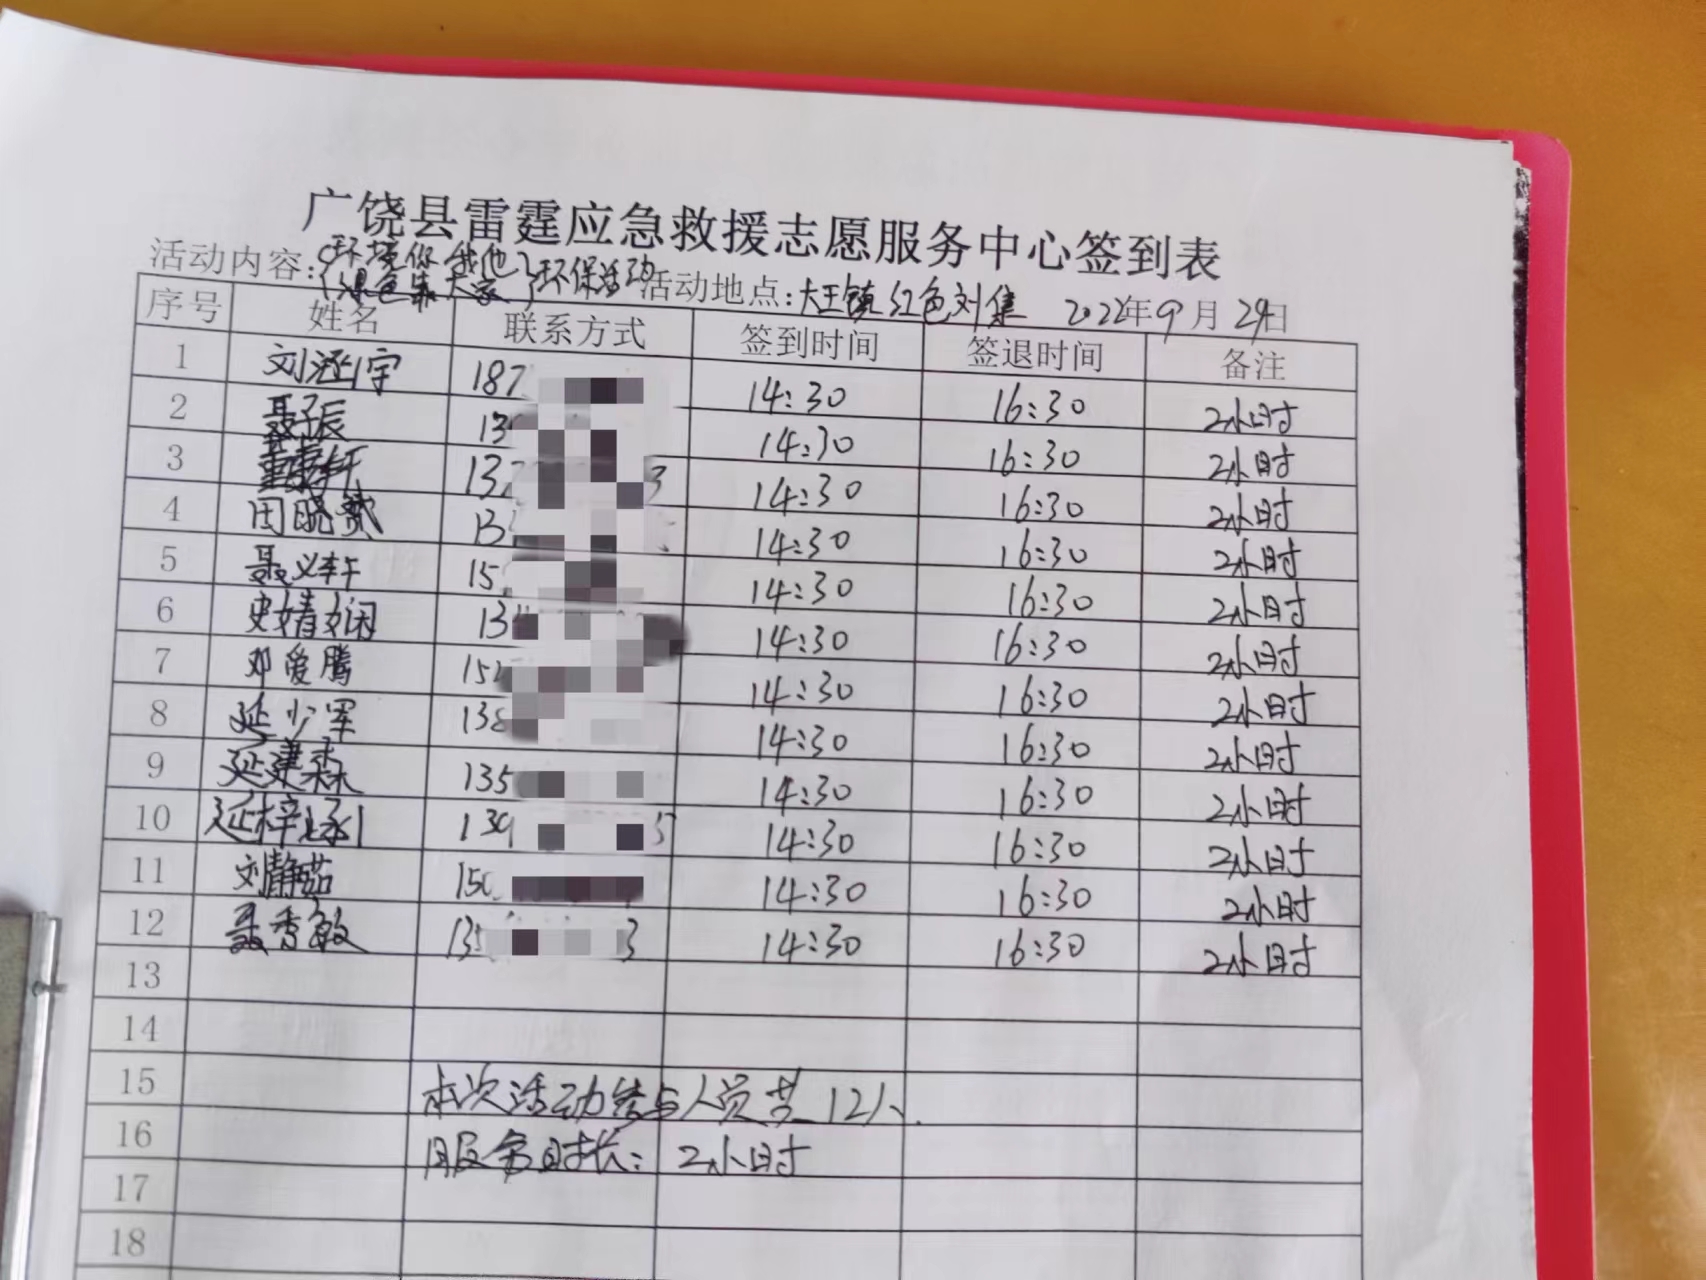 广饶县雷霆应急救援志愿服务中心签到表
活动内容：(环境你我他
绿色靠大家) 环保活动 活动地点：大王镇红色刘集 2022年9月29日
序号 姓名 联系方式 签到时间 签退时间 备注
1 刘涵宇 187 14:30 16:30 2小时
2 聂子辰 13 14:30 16:30 2小时
3 132 3 14:30 16:30 2小时
4 田晓燕 13 14:30 16:30 2小时
5 聂义轩 15 14:30 16:30 2小时
6 史婧娴 13 14:30 16:30 2小时
7 邓爱腾 152 14:30 16:30 2小时
8 延少军 138 14:30 16:30 2小时
9 延建森 135 14:30 16:30 2小时
10 延梓 139 5 14:30 16:30 2小时
11 刘静茹 150 14:30 16:30 2小时
12 聂秀敏 135 3 14:30 16:30 2小时
13
14
15 本次活动参与人员共12人.
16 服务时长：2小时
17
18